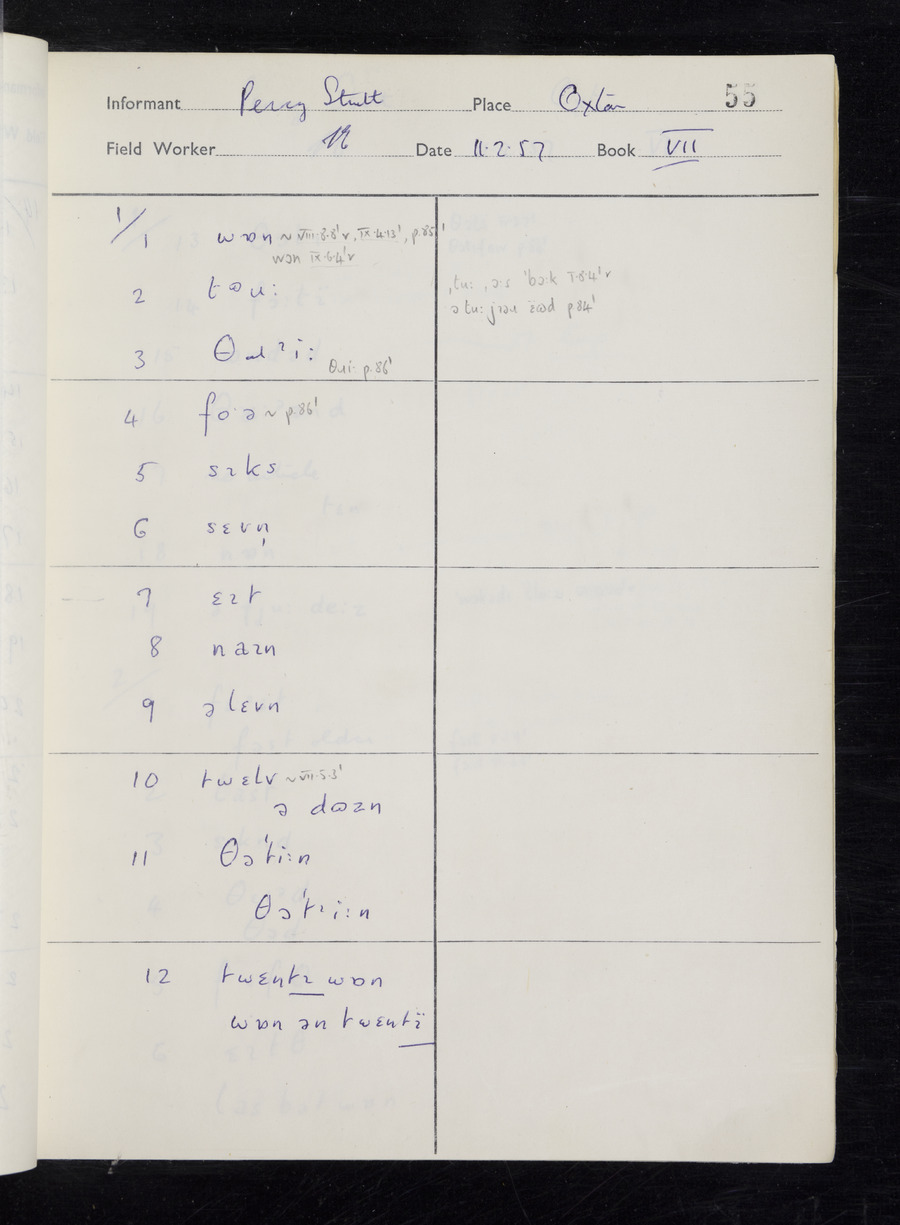 Informant Percy Strutt Place Oxton 55
Field Worker Date 11·2·57 Book VII
1/1 wɒn ~ VIII·8·8' v, IX·4·13', p.85'
wɒn IX·6·4' v
2 tɷu: ˌtu: ˌɔ:s ˈbɔ:k I·8·4' v
ə tu: p 84'
3 θɹi: θɹi· p.86'
4 fo·ə ~ p.86'
5 sɪks
6 sɛvn̩
7 ɛɪt
8 naɪn
9 əlɛvn
10 twɛlv ~ VII·5·3'
ə dɷzn
11 θəˈti:n
θəˈtɪi:n
12 twɛntɪ wɒn
wɒn ən twɛntï